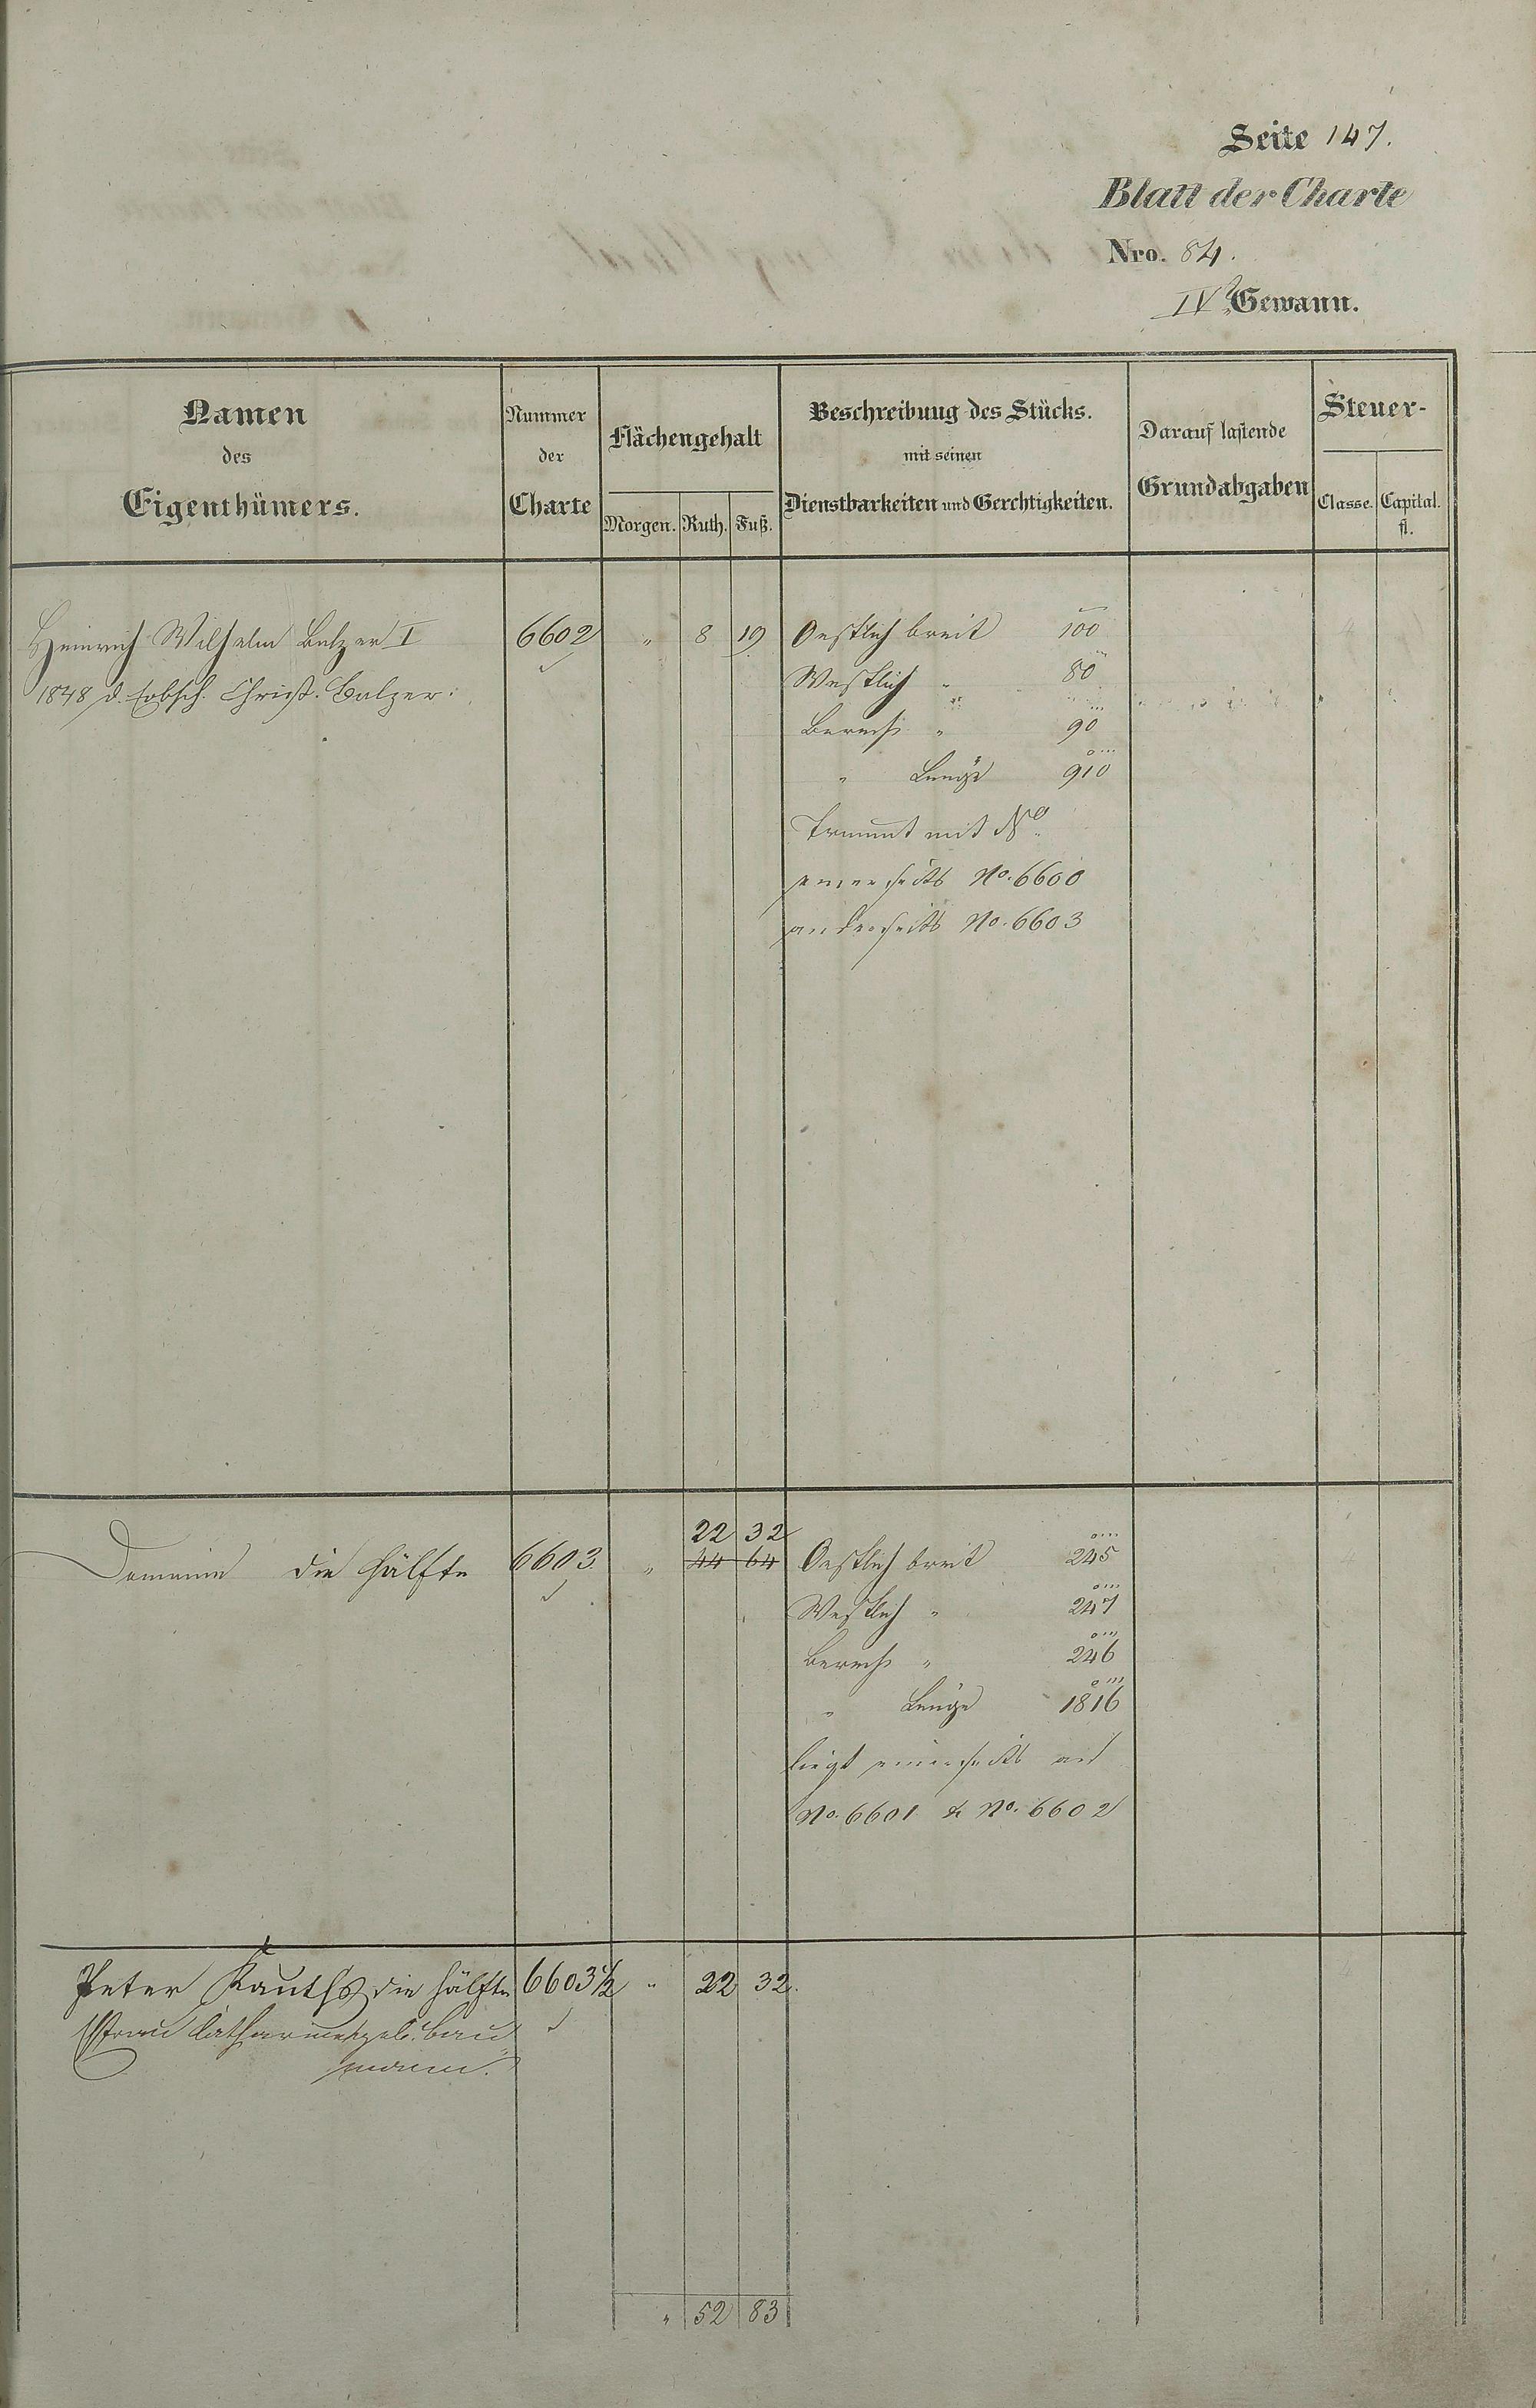 Seite 147.
Blatt der Charte
Nro. 84.
IV Gewann.
Namen des Eigenthümers.
Nummer der Charte
Flächengehalt
Morgen. Ruth. Fuß.
Beschreibung des Stücks. mit seinen Dienstbarkeiten und Gerchtigkeiten.
Darauf lastende Grundabgaben
Steuer-
Classe. Capital. fl.
Heinrich Wilhelm Balzer I 6602 " 8 19 Oestlich breit 100
1848 d. Erbsch. Christ. Balzer. Westlich " 80
Berech " 90
" Länge 910
mit No
einerseits No. 6600
anderseits No. 6603
22 32
Domaine die Hälfte 6603. " 44 64 Oestlich breit 245
Westlich " 247
Berech " 246
" Länge 1816
liegt einerseits an
No. 6601 & No. 6602
Peter Kauths die Hälfte 6603½ " 22 32.
Frau Catharine geb. Bau
mann.
" 52 83